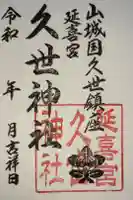 山城国久世鎮座
延喜宮
久世神社
令和 年 月吉祥日
延喜宮
神社